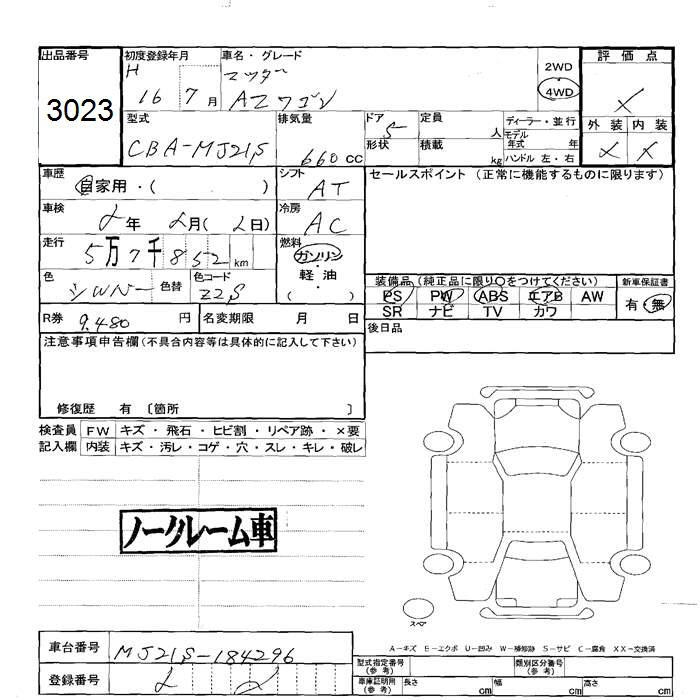 出品番号 初度登録年月 車名・グレード 評価点
3023 H 16 7月 マツダー AZワゴン 2WD 4WD ×
型式 排気量 ドア 定員 人 ディーラー・並行 外装 内装
CBA-MJ21S 660cc 5 形状 積載 kg モデル年式 年 ハンドル 左・右 × ×
車歴 自家用・( ) シフト AT セールスポイント (正常に機能するものに限ります)
車検 年 月( 日) 冷房 AC
走行 5万7千852km 燃料 ガソリン・軽油 ( )
色 シルバー 色替 色コード Z2S 装備品 (純正品に限り○をつけてください) 新車保証書
PS PW ABS エアB AW 有・無
SR ナビ TV カワ
R券 9,480円 名変期限 月 日 後日品
注意事項申告欄(不具合内容等は具体的に記入して下さい)
修復歴 有 〔箇所 〕
検査員 FW キズ・飛石・ヒビ割・リペア跡・×要
記入欄 内装 キズ・汚レ・コゲ・穴・スレ・キレ・破レ
ノークレーム車
スペア
A-キズ E-エクボ U-凹み W-補修跡 S-サビ C-腐食 XX-交換済
車台番号 MJ21S-184296 型式指定番号(参考) 類別区分番号(参考)
登録番号 車庫証明用(参考) 長さ cm 幅 cm 高さ cm